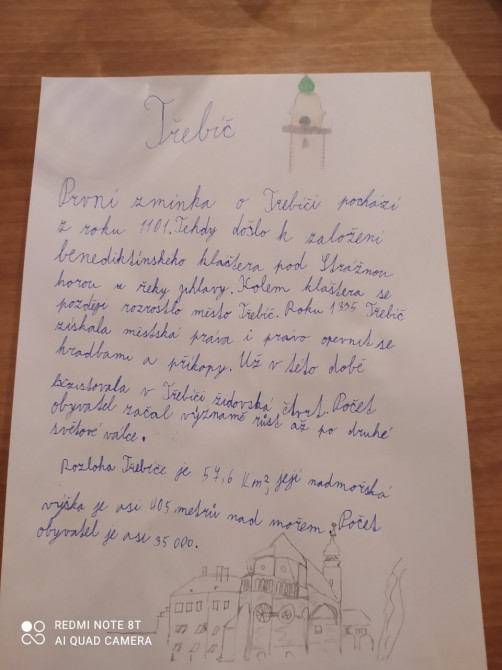 Třebíč
První zmínka o Třebíči pochází
z roku 1101. Tehdy došlo k založení
benediktínského kláštera pod Strážnou
horou u řeky Jihlavy. Kolem kláštera se
později rozrostlo město Třebíč. Roku 1335 Třebíč
získala městská práva i právo opevnit se
hradbami a příkopy. Už v této době
existovala v Třebíči židovská čtvrt. Počet
obyvatel začal významě růst až po druhé
světové válce.
Rozloha Třebíče je 57,6 Km², její nadmořská
výška je asi 405 metrů nad mořem. Počet
obyvatel je asi 35 000.
REDMI NOTE 8T
AI QUAD CAMERA